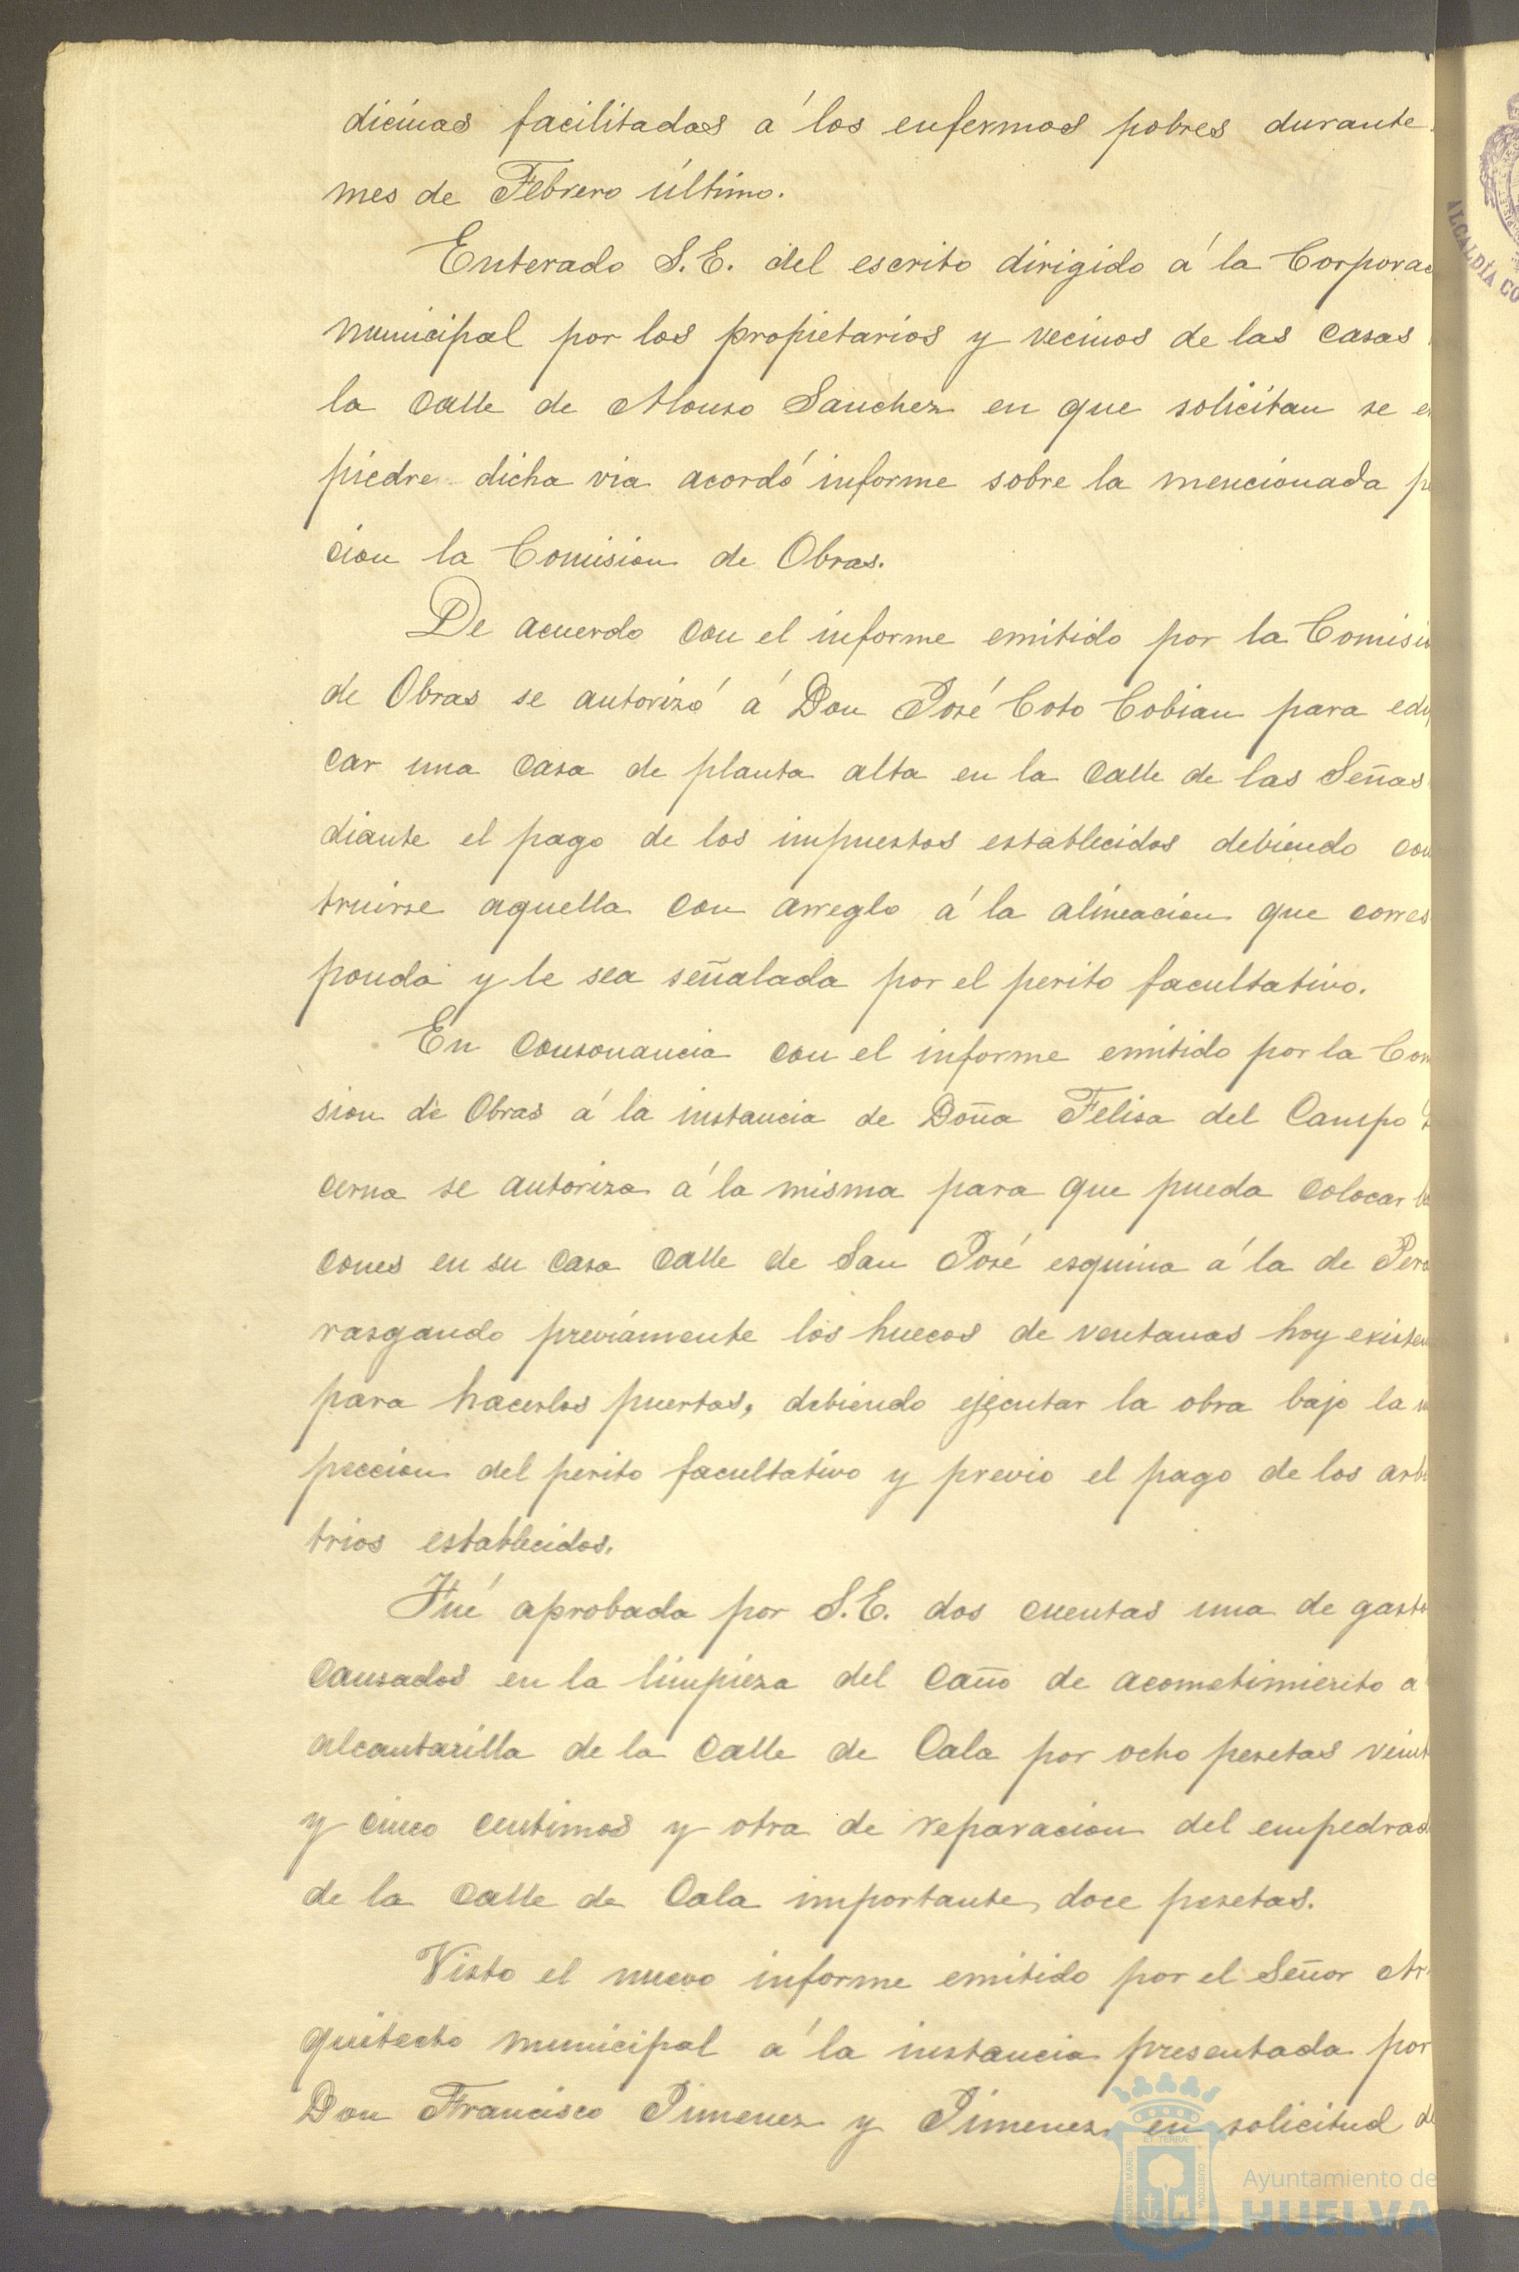 dicinas facilitadas á los enfermos pobres durante
mes de Febrero último.
Enterado S.E. del escrito dirigido á la Corporac
municipal por los propietarios y vecinos de las casas
la calle de Alonso Sanchez en que solicitan se e
piedre dicha via acordó informe sobre la mencionada p
cion la Comision de Obras.
De acuerdo con el informe emitido por la Comisio
de Obras se autorizó á Don José Coto Cobian para edi
car una casa de planta alta en la calle de las Señas
diante el pago de los impuestos establecidos debiendo con
truirse aquella con arreglo á la alineacion que corres
ponda y le sea señalada por el perito facultativo.
En consonancia con el informe emitido por la Com
sion de Obras á la instancia de Doña Felisa del Campo
cerna se autoriza á la misma para que pueda colocar
cones en su casa calle de San José esquina á la de Pera
rasgando previamente los huecos de ventanas hoy existen
para hacerlos puertas, debiendo ejecutar la obra bajo la
peccion del perito facultativo y previo el pago de los arb
trios establecidos.
Fué aprobada por S.E. dos cuentas una de gasto
causados en la limpieza del caño de acometimiento a
alcantarilla de la calle de Cala por ocho pesetas veint
y cinco centimos y otra de reparacion del empedrad
de la calle de Cala importante doce pesetas.
Visto el nuevo informe emitido por el Señor Ar
quitecto municipal á la instancia presentada por
Don Francisco Jimenez y Jimenez en solicitud de
ALCALDÍA CO
Ayuntamiento de
HUELVA